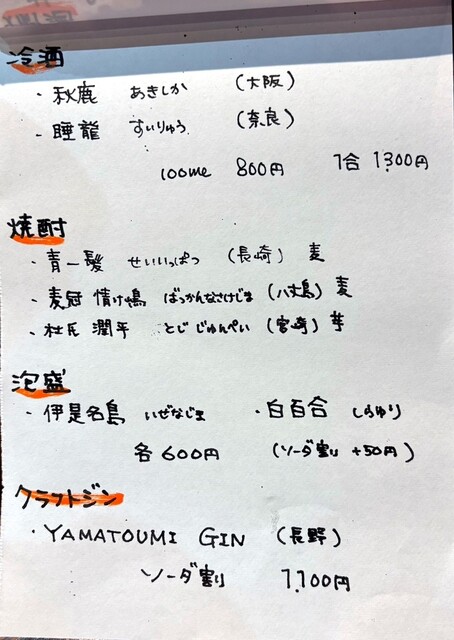 冷酒
・秋鹿 あきしか (大阪)
・睡龍 すいりゅう (奈良)
100ml 800円 1合 1,300円
焼酎
・青一髪 せいいっぱつ (長崎) 麦
・麦冠 情け嶋 ばっかんなさけじま (八丈島) 麦
・杜氏 潤平 とじ じゅんぺい (宮崎) 芋
泡盛
・伊是名島 いぜなじま ・白百合 しらゆり
各600円 (ソーダ割り +50円)
クラフトジン
・YAMATOUMI GIN (長野)
ソーダ割 1,100円